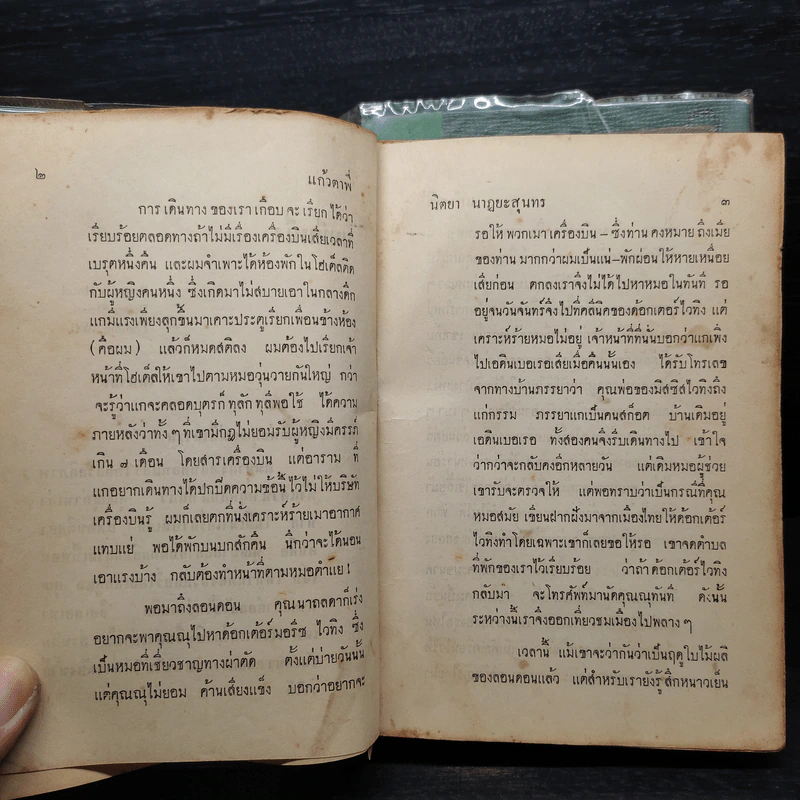 ๒
แก้วตาพี่
การ เดินทาง ของเรา เกือบ จะ เรียก ได้ว่า
เรียบร้อยตลอดทางถ้าไม่มีเรื่องเครื่องบินเสียเวลาที่
เบรุตหนึ่งคืน และผมจำเพาะได้ห้องพักในโฮเต็ลติด
กับผู้หญิงคนหนึ่ง ซึ่งเกิดมาไม่สบายเอาในกลางดึก
แกมีแรงเพียงลุกขึ้นมาเคาะประตูเรียกเพื่อนข้างห้อง
(คือผม) แล้วก็หมดสติลง ผมต้องไปเรียกเจ้า
หน้าที่โฮเต็ลให้เขาไปตามหมอวุ่นวายกันใหญ่ กว่า
จะรู้ว่าแกจะคลอดบุตรก็ทุลักทุลีพอใช้ ได้ความ
ภายหลังว่าทั้ง ๆ ที่เขามีกฎไม่ยอมรับผู้หญิงมีครรภ์
เกิน ๗ เดือน โดยสารเครื่องบิน แต่อาราม ที่
แกอยากเดินทางได้ปกปีดความข้อนี้ไว้ไม่ให้บริษัท
เครื่องบินรู้ ผมก็เลยตกที่นั่งเคราะห์ร้ายเมาอากาศ
แทบแย่ พอได้พักบนบกสักคืน นึกว่าจะได้นอน
เอาแรงบ้าง กลับต้องทำหน้าที่ตามหมอตำแย!
พอมาถึงลอนดอน คุณนาถลดาก็เร่ง
อยากจะพาคุณณุไปหาด้อกเต้อร์มอริซ ไวทิง ซึ่ง
เป็นหมอที่เชี่ยวชาญทางผ่าตัด ตั้งแต่บ่ายวันนั้น
แต่คุณณุไม่ยอม ค้านเสียงแข็ง บอกว่าอยากจะ
นิตยา นาฏยะสุนทร
๓
รอให้ พวกเมาเครื่องบิน – ซึ่งท่าน คงหมาย ถึงเมีย
ของท่าน มากกว่าผมเป็นแน่–พักผ่อนให้หายเหนื่อย
เสียก่อน ตกลงเราจึงไม่ได้ไปหาหมอในทันที รอ
อยู่จนวันจันทร์จึงไปที่คลีนิคของด้อกเตอร์ไวทิง แต่
เคราะห์ร้ายหมอไม่อยู่ เจ้าหน้าที่ที่นั่นบอกว่าแกเพิ่ง
ไปเอดินเบอเรอเสียเมื่อคืนนั้นเอง ได้รับโทรเลข
จากทางบ้านภรรยาว่า คุณพ่อของมิสซิสไวทิงถึง
แก่กรรม ภรรยาแกเป็นคนสก๊อต บ้านเดิมอยู่
เอดินเบอเรอ ทั้งสองคนจึงรีบเดินทางไป เข้าใจ
ว่ากว่าจะกลับคงอีกหลายวัน แต่เดิมหมอผู้ช่วย
เขารับจะตรวจให้ แต่พอทราบว่าเป็นกรณีที่คุณ
หมอสมัย เขียนฝากฝังมาจากเมืองไทยให้ด้อกเต้อร์
ไวทิงทำโดยเฉพาะเขาก็เลยขอให้รอ เขาจดตำบล
ที่พักของเราไว้เรียบร้อย ว่าถ้าด้อกเต้อร์ไวทิง
กลับมา จะโทรศัพท์มานัดคุณณุทันที ดังนั้น
ระหว่างนี้เราจึงออกเที่ยวชมเมืองไปพลาง ๆ
เวลานี้ แม้เขาจะว่ากันว่าเป็นฤดูใบไม้ผลิ
ของลอนดอนแล้ว แต่สำหรับเรายังรู้สึกหนาวเย็น